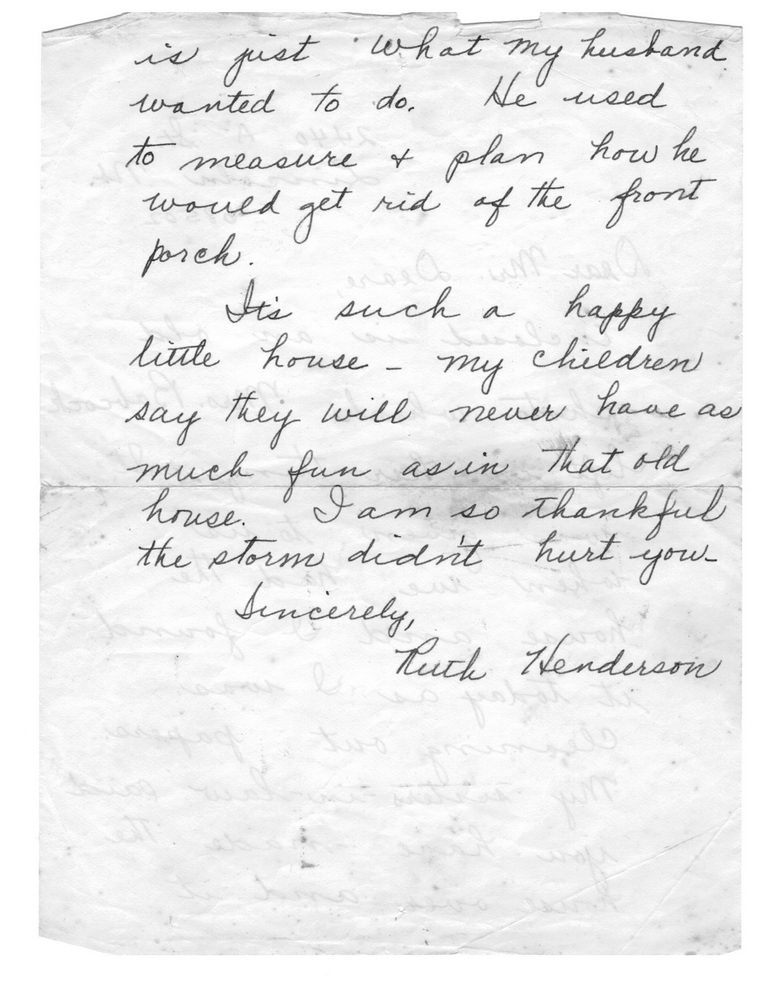 is just what my husband
wanted to do. He used
to measure & plan how he
would get rid of the front
porch.
It's such a happy
little house - my children
say they will never have as
much fun as in that old
house. I am so thankful
the storm didn't hurt you-
Sincerely,
Ruth Henderson